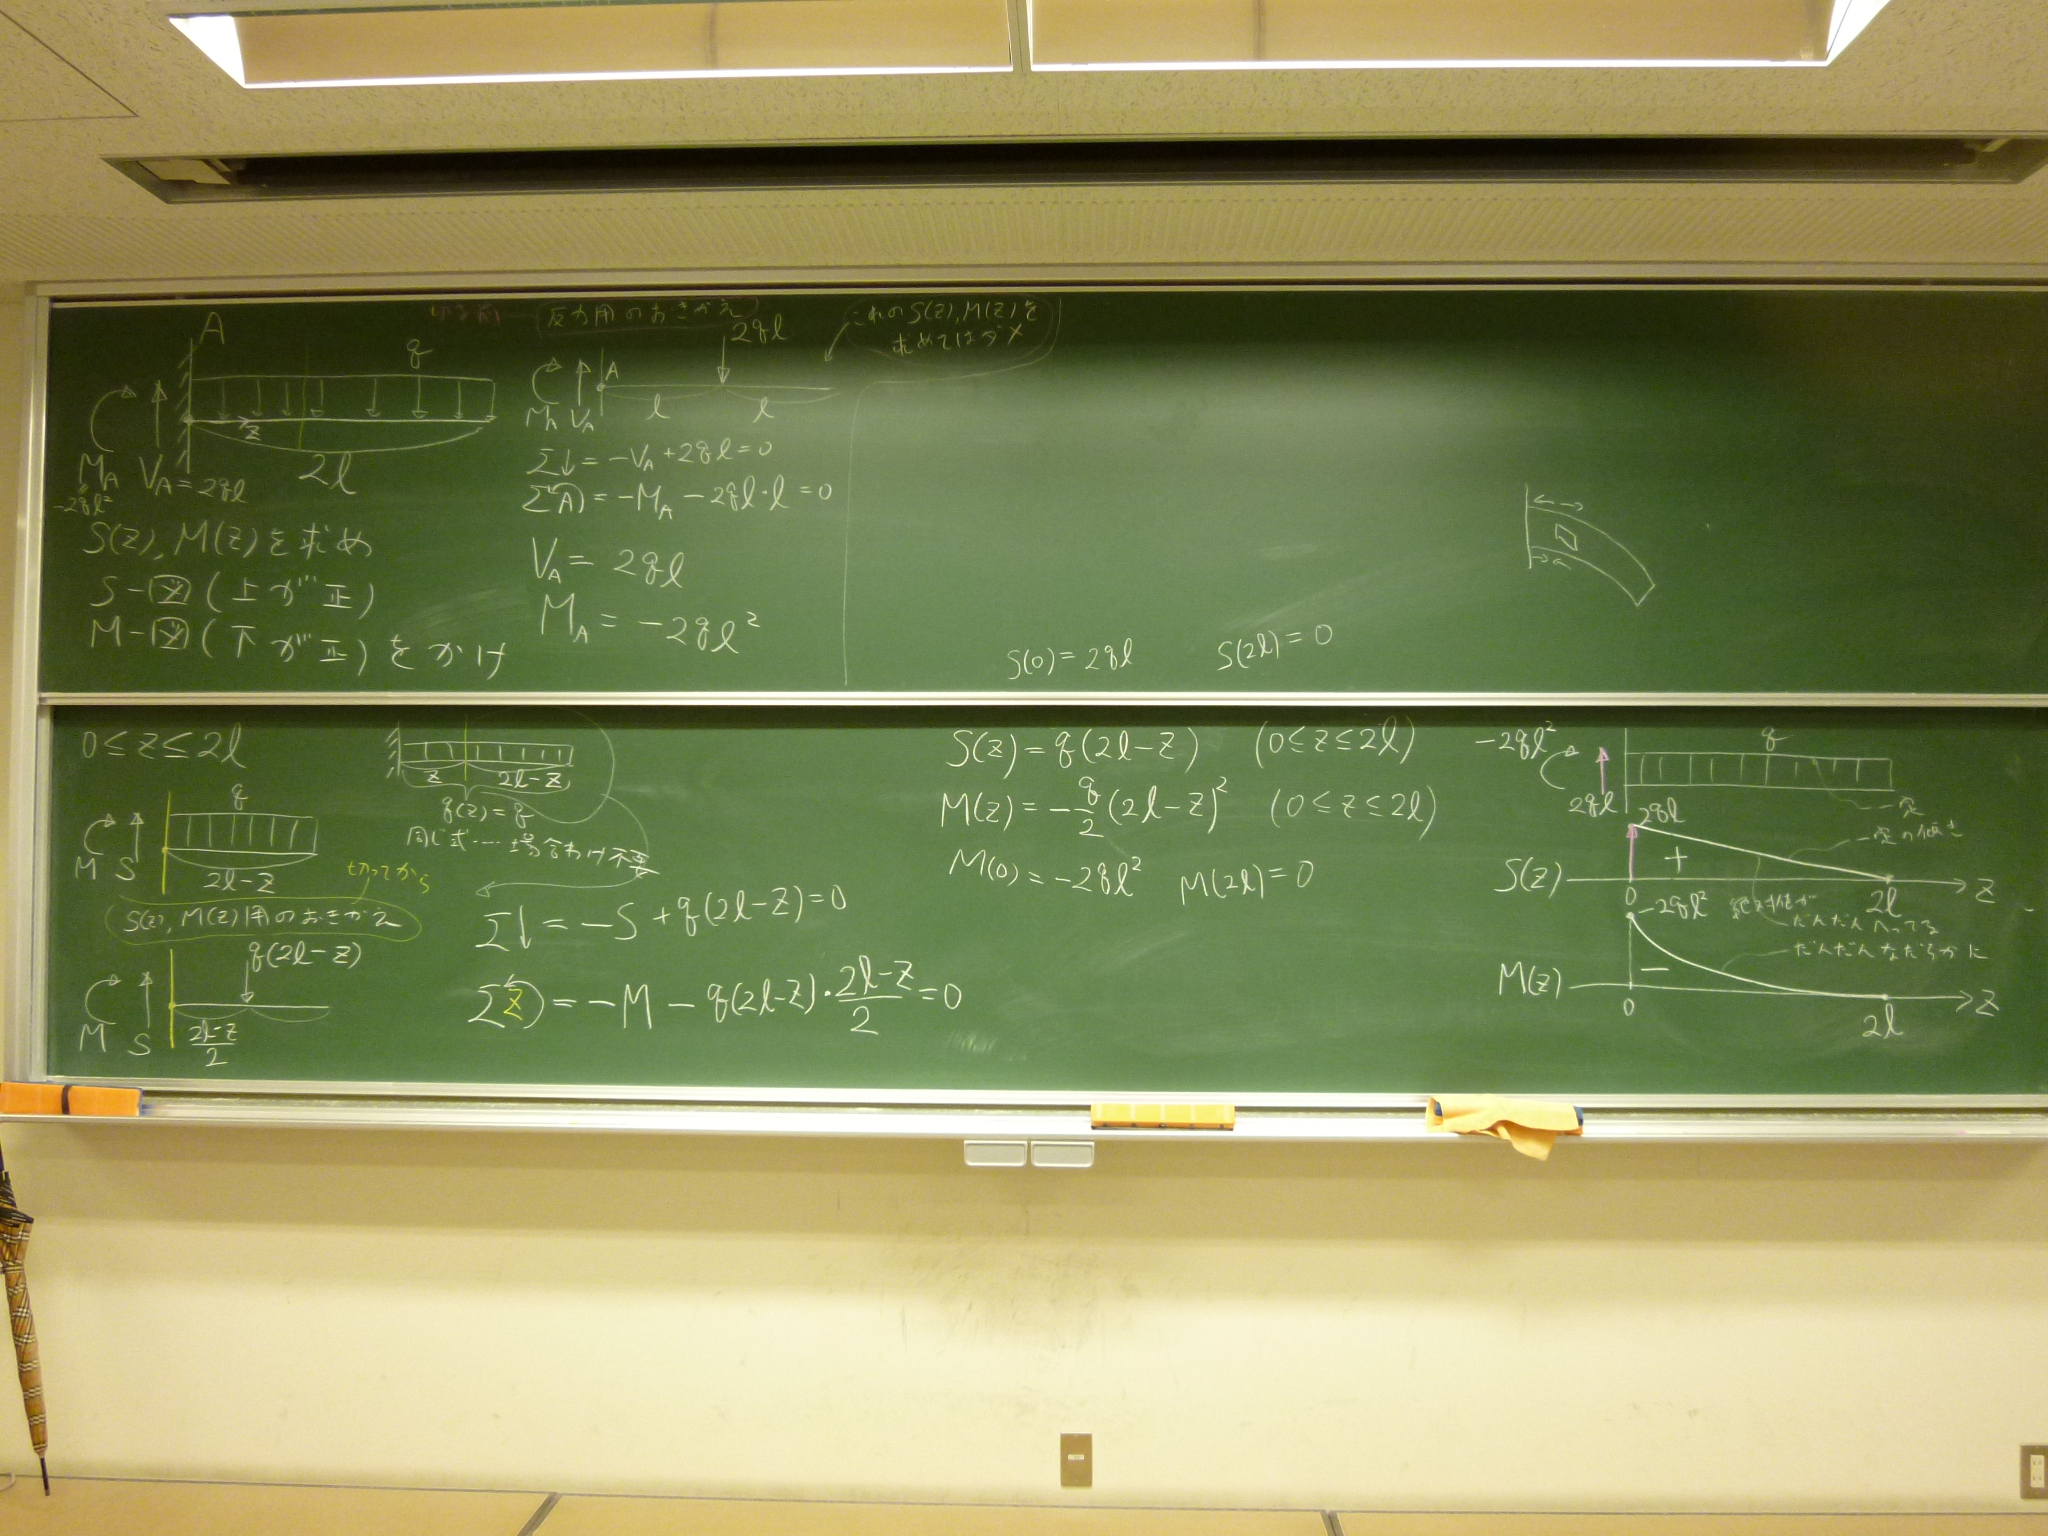 A
q
z
M_A V_A = 2ql
-2ql²
2l
S(z), M(z)を求め
S-図(上が正)
M-図(下が正)をかけ
切る前
反力用のおきかえ
2ql
これのS(z), M(z)を
求めてはダメ
A
M_A V_A
l l
Σ↓ = -V_A + 2ql = 0
ΣA) = -M_A - 2ql・l = 0
V_A = 2ql
M_A = -2ql²
S(0) = 2ql S(2l) = 0
0≤z≤2l
q
M S
2l-z
切ってから
S(z), M(z)用のおきかえ
q(2l-z)
M S
(2l-z)/2
z 2l-z
q(z) = q
同じ式…場合わけ不要
Σ↓ = -S + q(2l-z) = 0
Σz) = -M - q(2l-z)・(2l-z)/2 = 0
S(z) = q(2l-z) (0≤z≤2l)
M(z) = -q/2(2l-z)² (0≤z≤2l)
M(0) = -2ql² M(2l) = 0
-2ql²
q
2ql
一定
2ql
一定の傾き
+
S(z)
0 2l z
-2ql²
絶対値が
だんだんへってる
だんだんなだらかに
−
M(z)
0 2l z